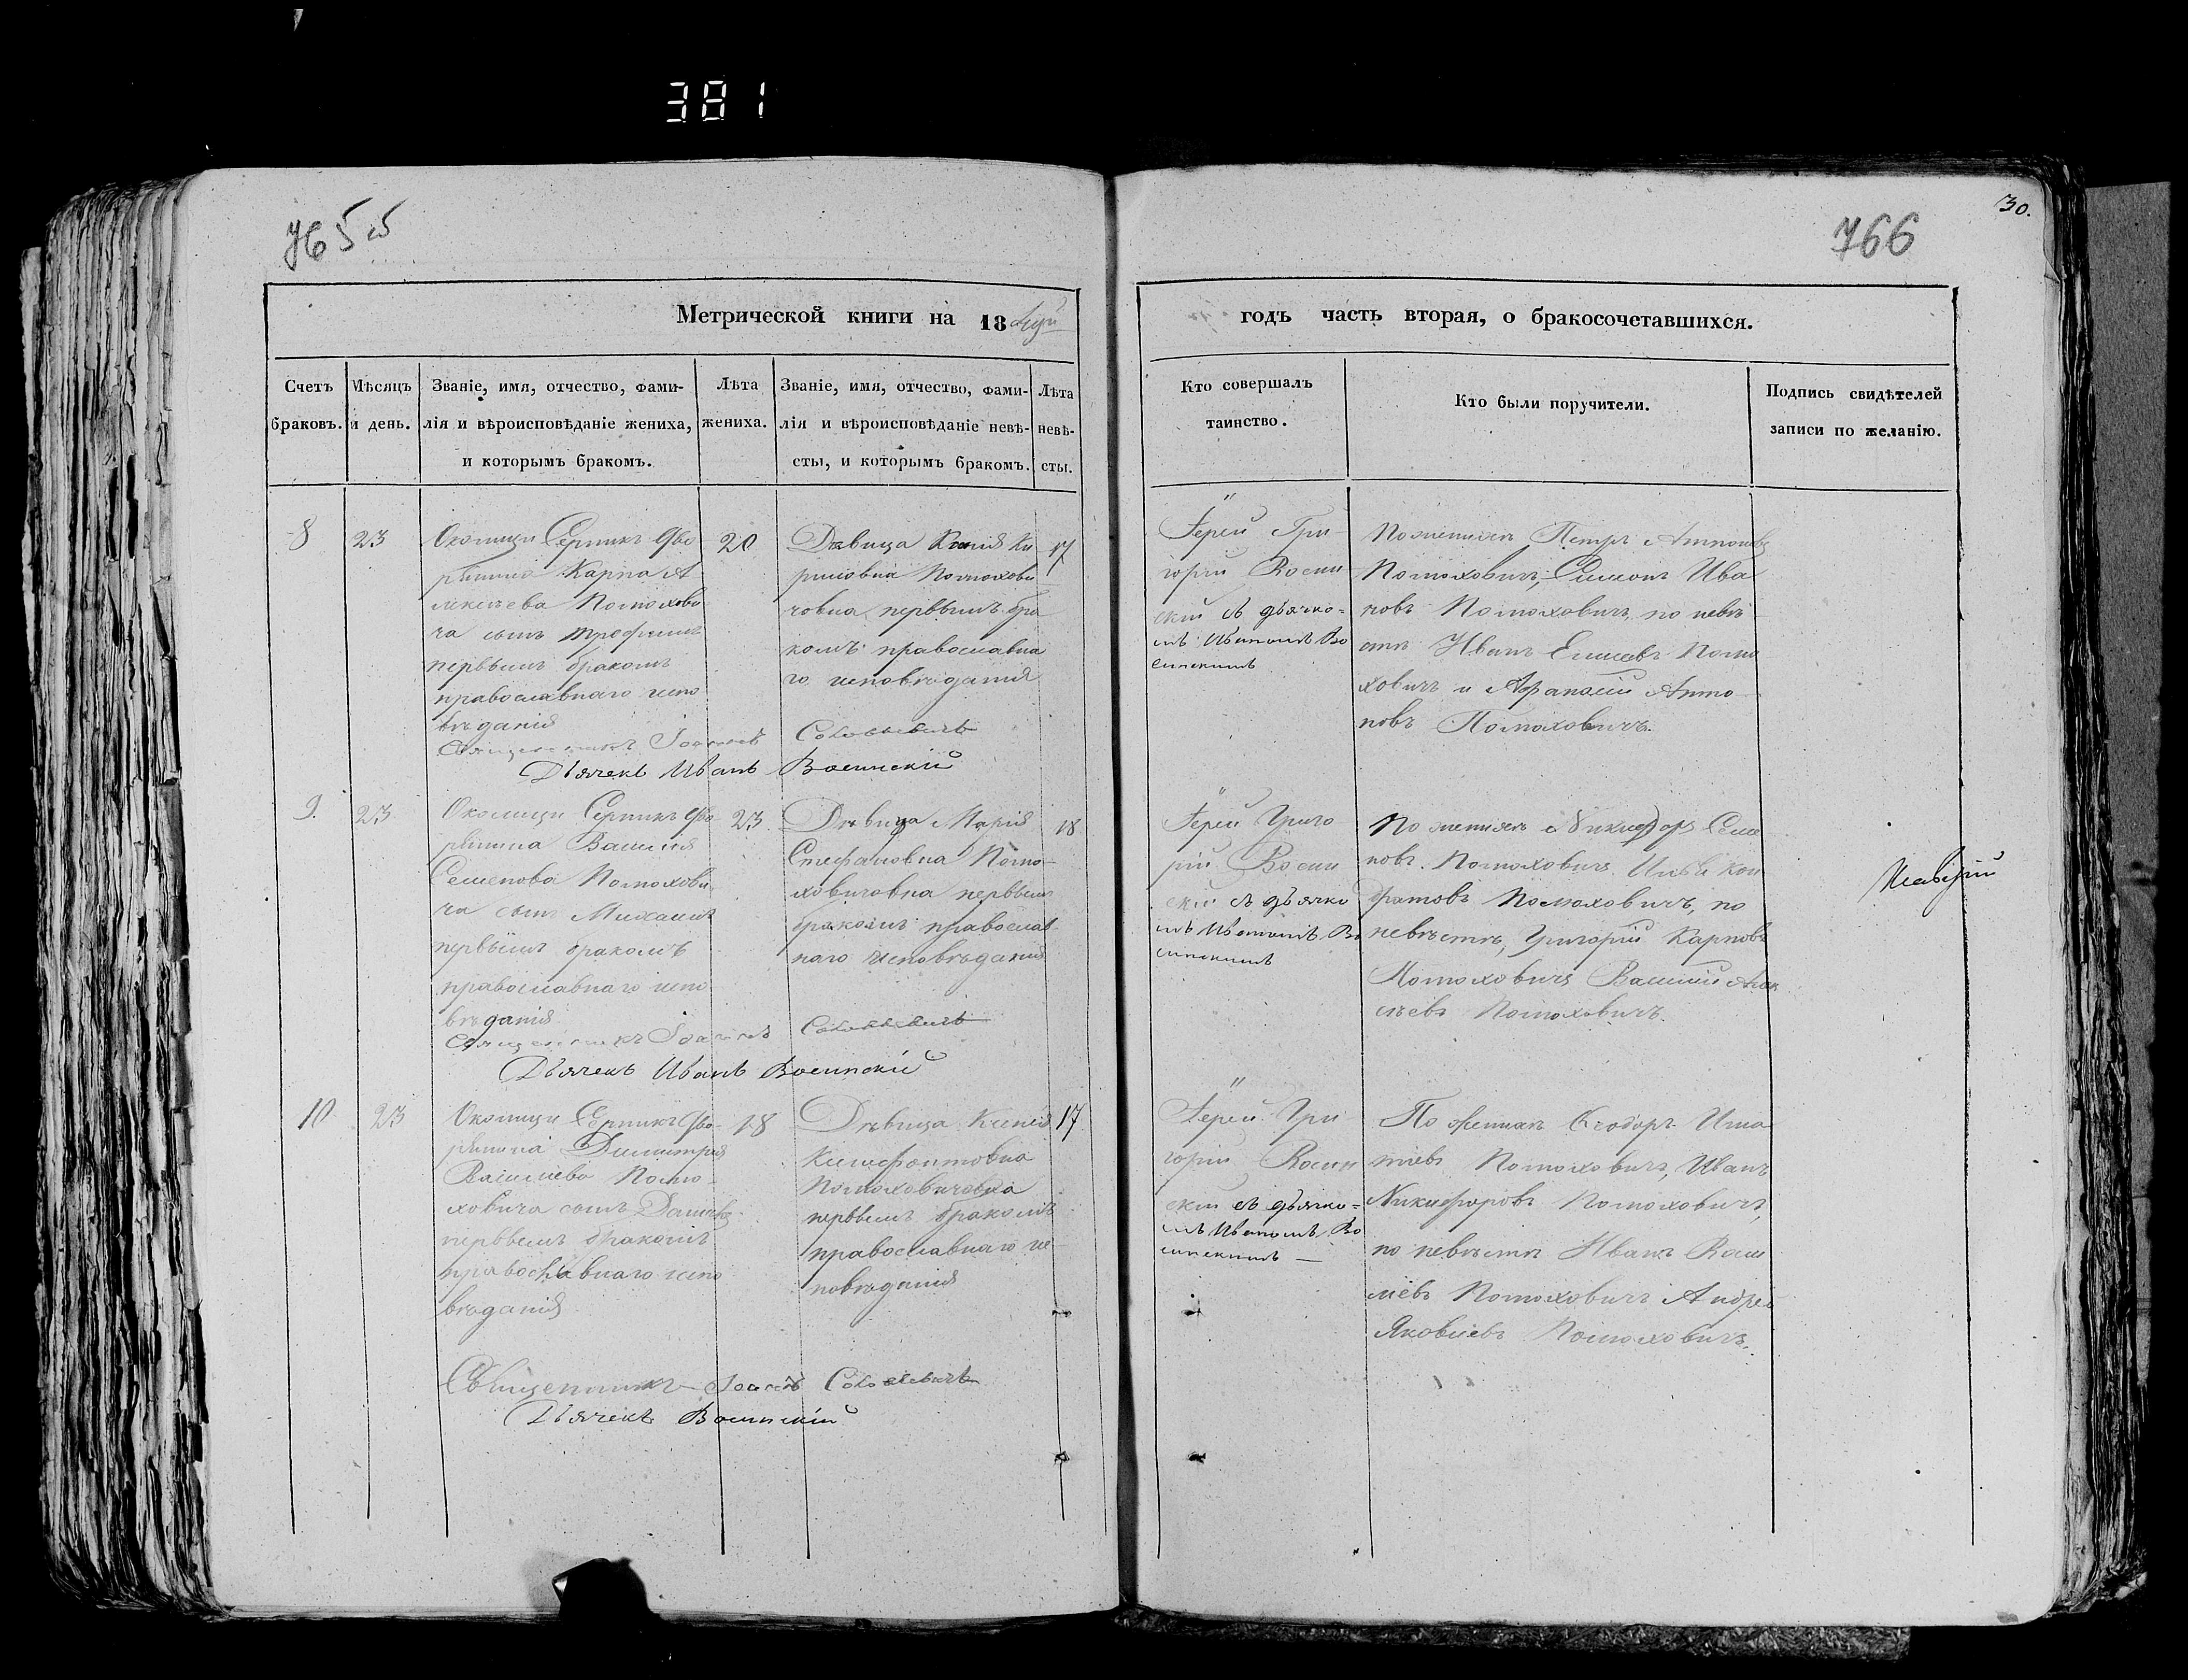 381
765
766
30.
Метрической книги на 18
годъ часть вторая, о бракосочетавшихся.
Счетъ браковъ.
Мѣсяцъ и день.
Званіе, имя, отчество, фами-
лія и вѣроисповѣданіе жениха,
и которымъ бракомъ.
Лѣта
жениха.
Званіе, имя, отчество, фами-
лія и вѣроисповѣданіе невѣ-
сты, и которымъ бракомъ.
Лѣта
невѣ-
сты.
Кто совершалъ
таинство.
Кто были поручители.
Подпись свидѣтелей
записи по желанію.
8
23
Околицы Серникъ дво
рянина Карпа А
лексѣева Полюхови
ча сынъ Трофимъ
первымъ бракомъ
православнаго испо
вѣданія
20
Дѣвица Ксенія Ки
риловна Полюхови
човна первымъ бра
комъ православна
го исповѣданія
17
Іерей Гри
горій Восин
скій съ дьячко=
мъ Иваномъ Во
синскимъ
По женихѣ Петръ Антоновъ
Полюховичъ, Симонъ Ива
новъ Полюховичъ, по невѣ
стѣ Иванъ Елисеевъ Полю
ховичъ и Афанасій Анто
новъ Полюховичъ.
Священникъ Іоаннъ
Дьячекъ Иванъ Восинскій
9.
23
Околицы Серникъ дво
рянина Василія
Семенова Полюхови
ча сынъ Михаилъ
первымъ бракомъ
православнаго испо
вѣданія
23
Дѣвица Марія
Стефановна Полю-
ховичовна первымъ
бракомъ православ
наго исповѣданія
18
Іерей Григо
рій Восин
скій съ дьячко
мъ Иваномъ Во
синскимъ
По женихѣ Никифоръ Семе
новъ Полюховичъ Илья Кон
дратовъ Полюховичъ, по
невѣстѣ, Григорій Карповъ
Полюховичъ Василій Алек
сѣевъ Полюховичъ.
Священникъ Іоаннъ
Дьячекъ Иванъ Восинскій
10
23
Околицы Серникъ дво-
рянина Димитрія
Васильева Полю-
ховича сынъ
первымъ бракомъ
православнаго испо
вѣданія
18
Дѣвица Ксенія
Ксенофонтовна
Полюховичовна
первымъ бракомъ
православнаго ис
повѣданія
17
Іерей Гри
горій Восин
скій съ дьячко=
мъ Иваномъ Во
синскимъ
По женихѣ Ѳеодоръ Игна
тіевъ Полюховичъ, Иванъ
Никифоровъ Полюховичъ,
по невѣстѣ Иванъ Васи
лієвъ Полюховичъ Андрей
Яковлевъ Полюховичъ.
Священникъ Іоаннъ
Дьячекъ Восинскій